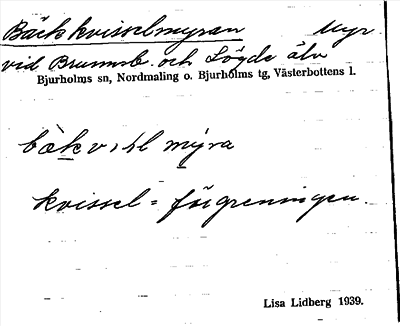 Bäckkvisselmyran Myr
vid Brunnsb. och Lögde älv
Bjurholms sn, Nordmaling o. Bjurholms tg, Västerbottens l.
mýra
kvissel = förgreningen.
Lisa Lidberg 1939.